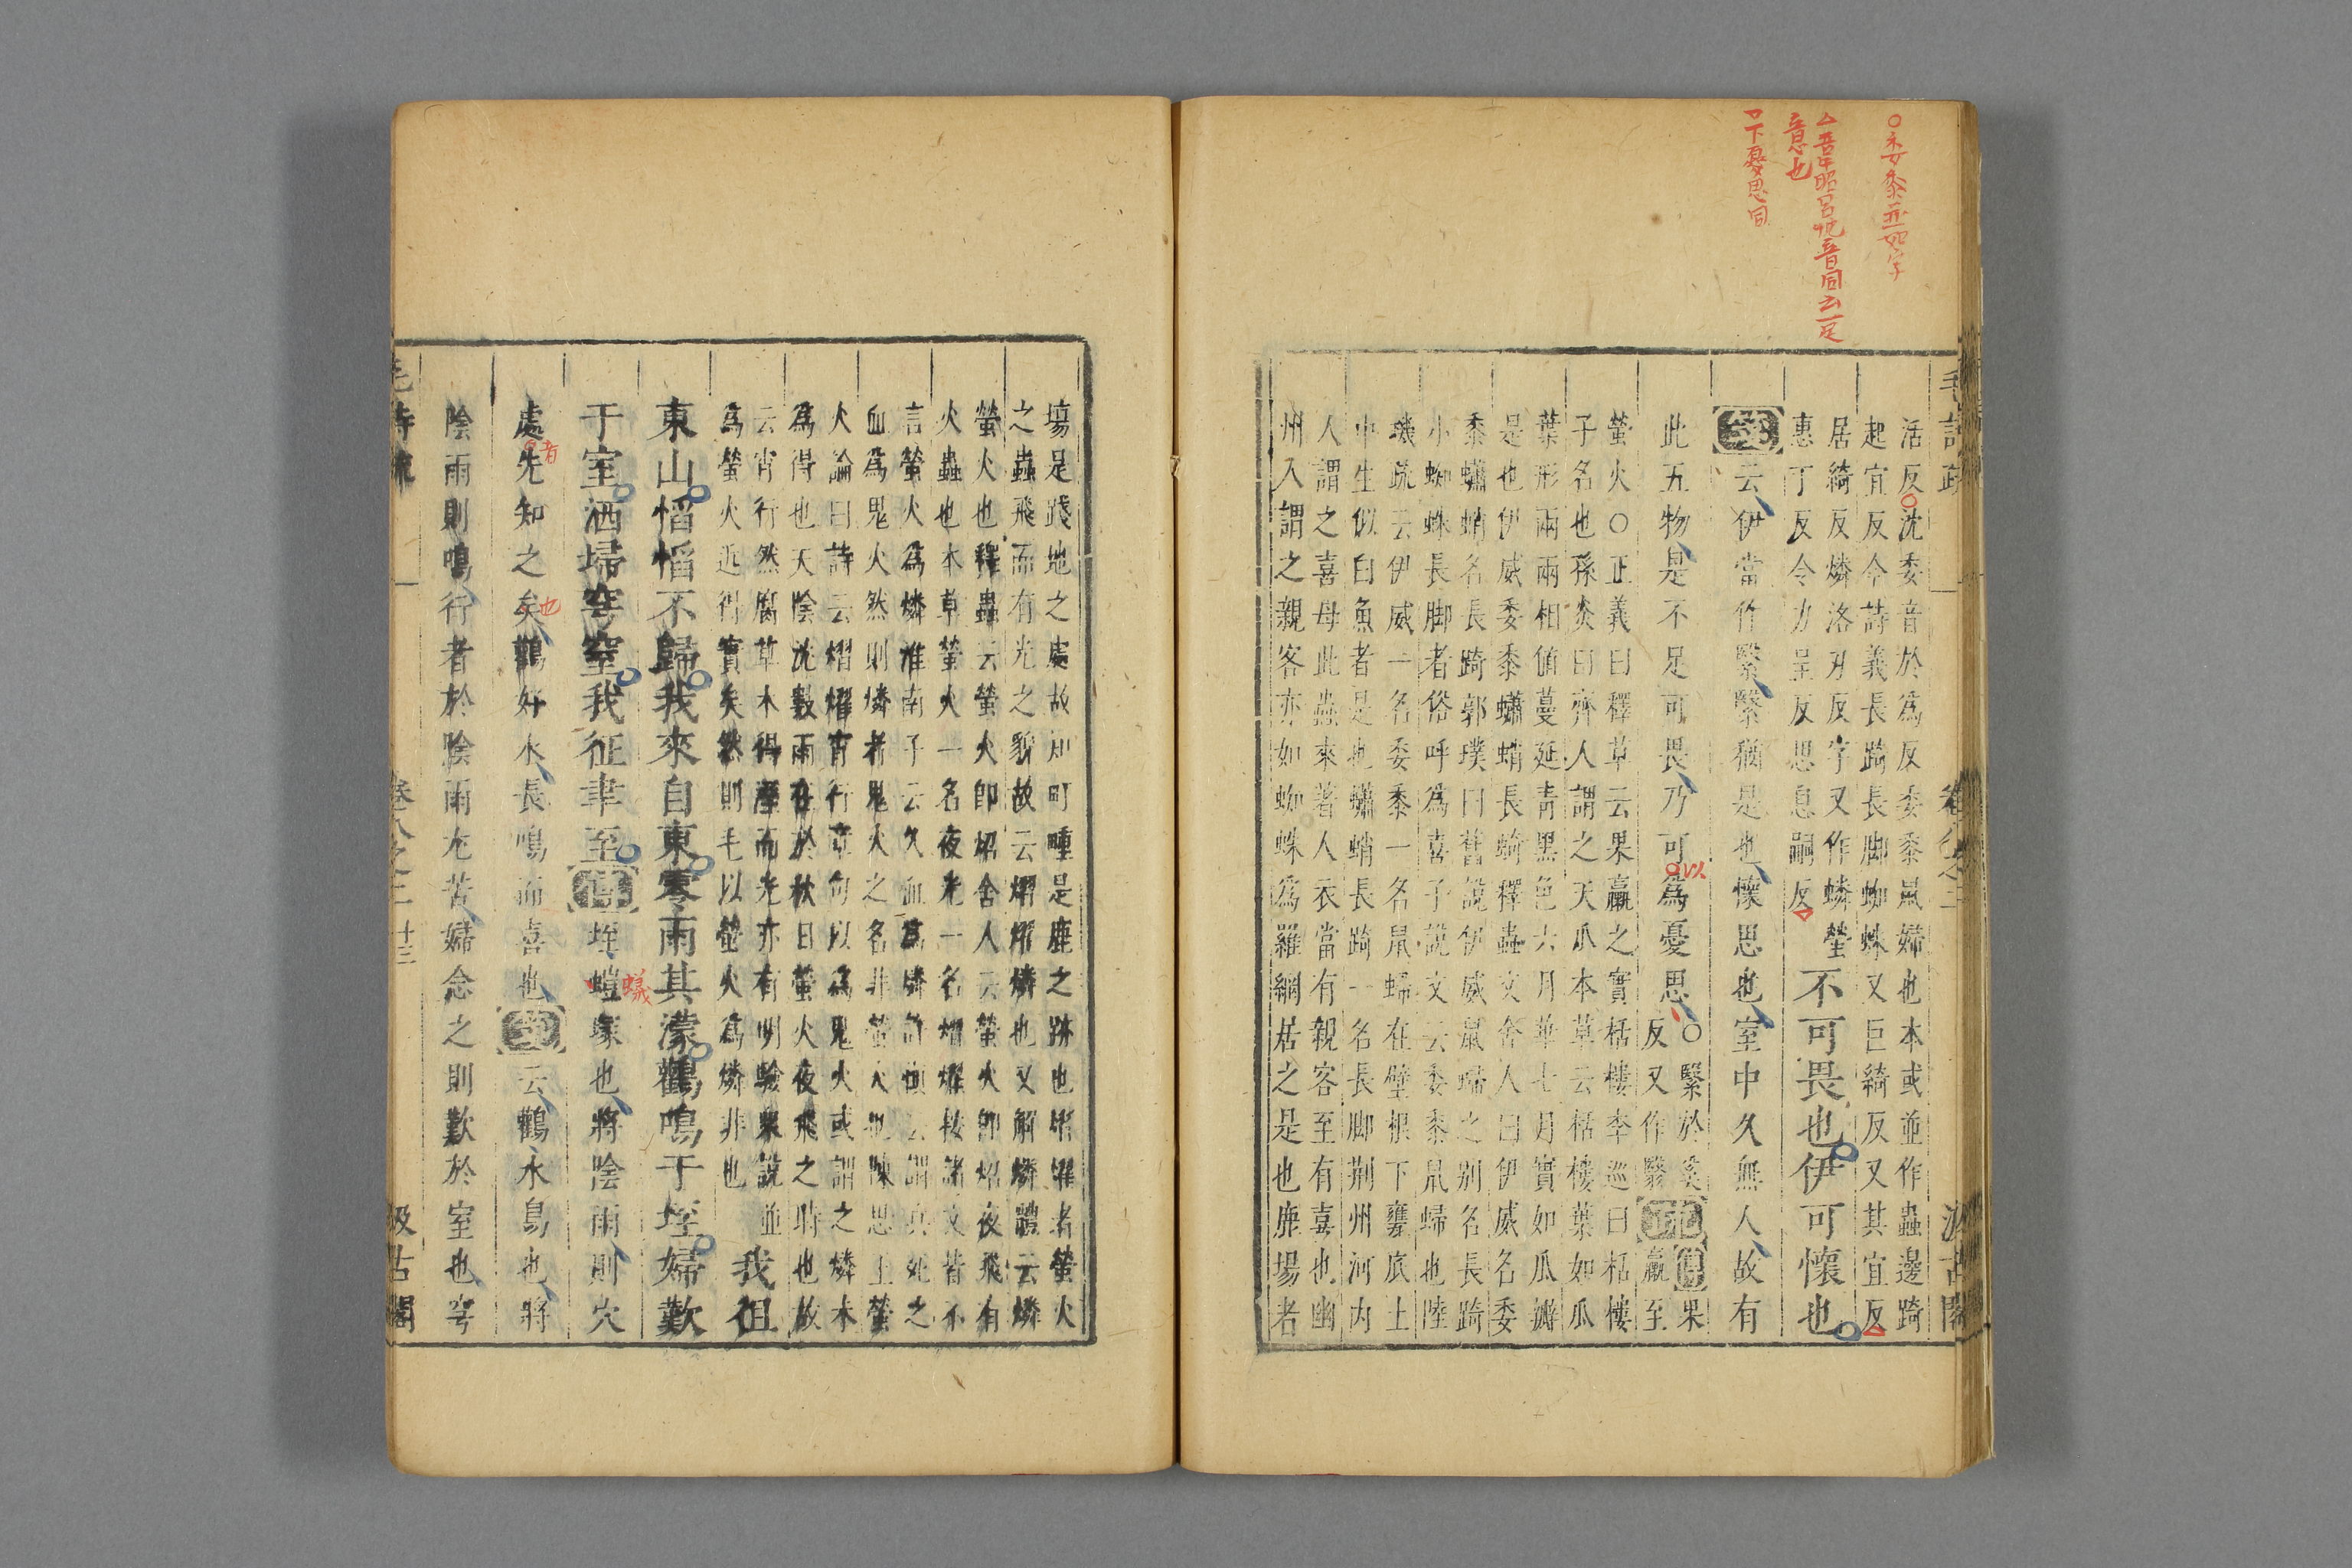 ○委黍並如字
音同云一足
意也
下憂思同
活反沈委音於爲反委黍鼠婦也本或並作蟲邊踦
起宜反今詩義長踦長脚蜘蛛又巨綺反又其宜反
居綺反燐洛刃反字又作蟒螢
惠丁反令力呈反思息嗣反
不可畏也伊可懷也
箋云伊當作繄繄猶是也懷思也室中久無人故有
此五物是不足可畏乃可爲憂思
以
○繄於奚
反又作黳
正義
傳果
臝至
螢火○正義曰釋草云果臝之實栝樓李巡曰栝樓
子名也孫炎曰齊人謂之天瓜本草云栝樓葉如瓜
葉形兩兩相値蔓延青黑色六月華七月實如瓜瓣
是也伊威委黍蠨蛸長踦釋蟲文舍人曰伊威名委
黍蠨蛸名長踦郭璞曰舊說伊威鼠婦之别名長踦
小蜘蛛長脚者俗呼爲喜子說文云委黍鼠婦也陸
璣疏云伊威一名委黍一名鼠婦在壁根下甕底土
中生似白魚者是也蠨蛸長踦一名長脚荆州河内
人謂之喜母此蟲來著人衣當有親客至有喜也幽
州人謂之親客亦如蜘蛛爲羅網居之是也鹿場者
場是踐地之處故知町畽是鹿之跡也熠燿者螢火
之蟲飛而有光之貌故云熠燿燐也又解燐體云燐
螢火也釋蟲云螢火即炤舍人云螢火即炤夜飛有
火蟲也本草螢火一名夜光一名熠燿按諸文皆不
言螢火爲燐淮南子云久血爲燐許愼云謂兵死之
血爲鬼火然則燐者鬼火之名非螢火也陳思王螢
火論曰詩云熠燿宵行章句以爲鬼火或謂之燐未
爲得也天陰沈數雨在於秋日螢火夜飛之時也故
云宵行然腐草木得溼而光亦有明驗衆說並
爲螢火近得實矣然則毛以螢火爲燐非也
我徂
東山慆慆不歸我來自東零雨其濛鸛鳴于垤婦歎
于室洒埽穹窒我征聿至傳垤螘塚也將陰雨則穴
蟻
處先知之矣鸛好水長鳴而喜也箋云鸛水鳥也將
者
也
陰雨則鳴行者於陰雨尤苦婦念之則歎於室也穹
毛詩疏
卷八之二
廿三
汲古閣